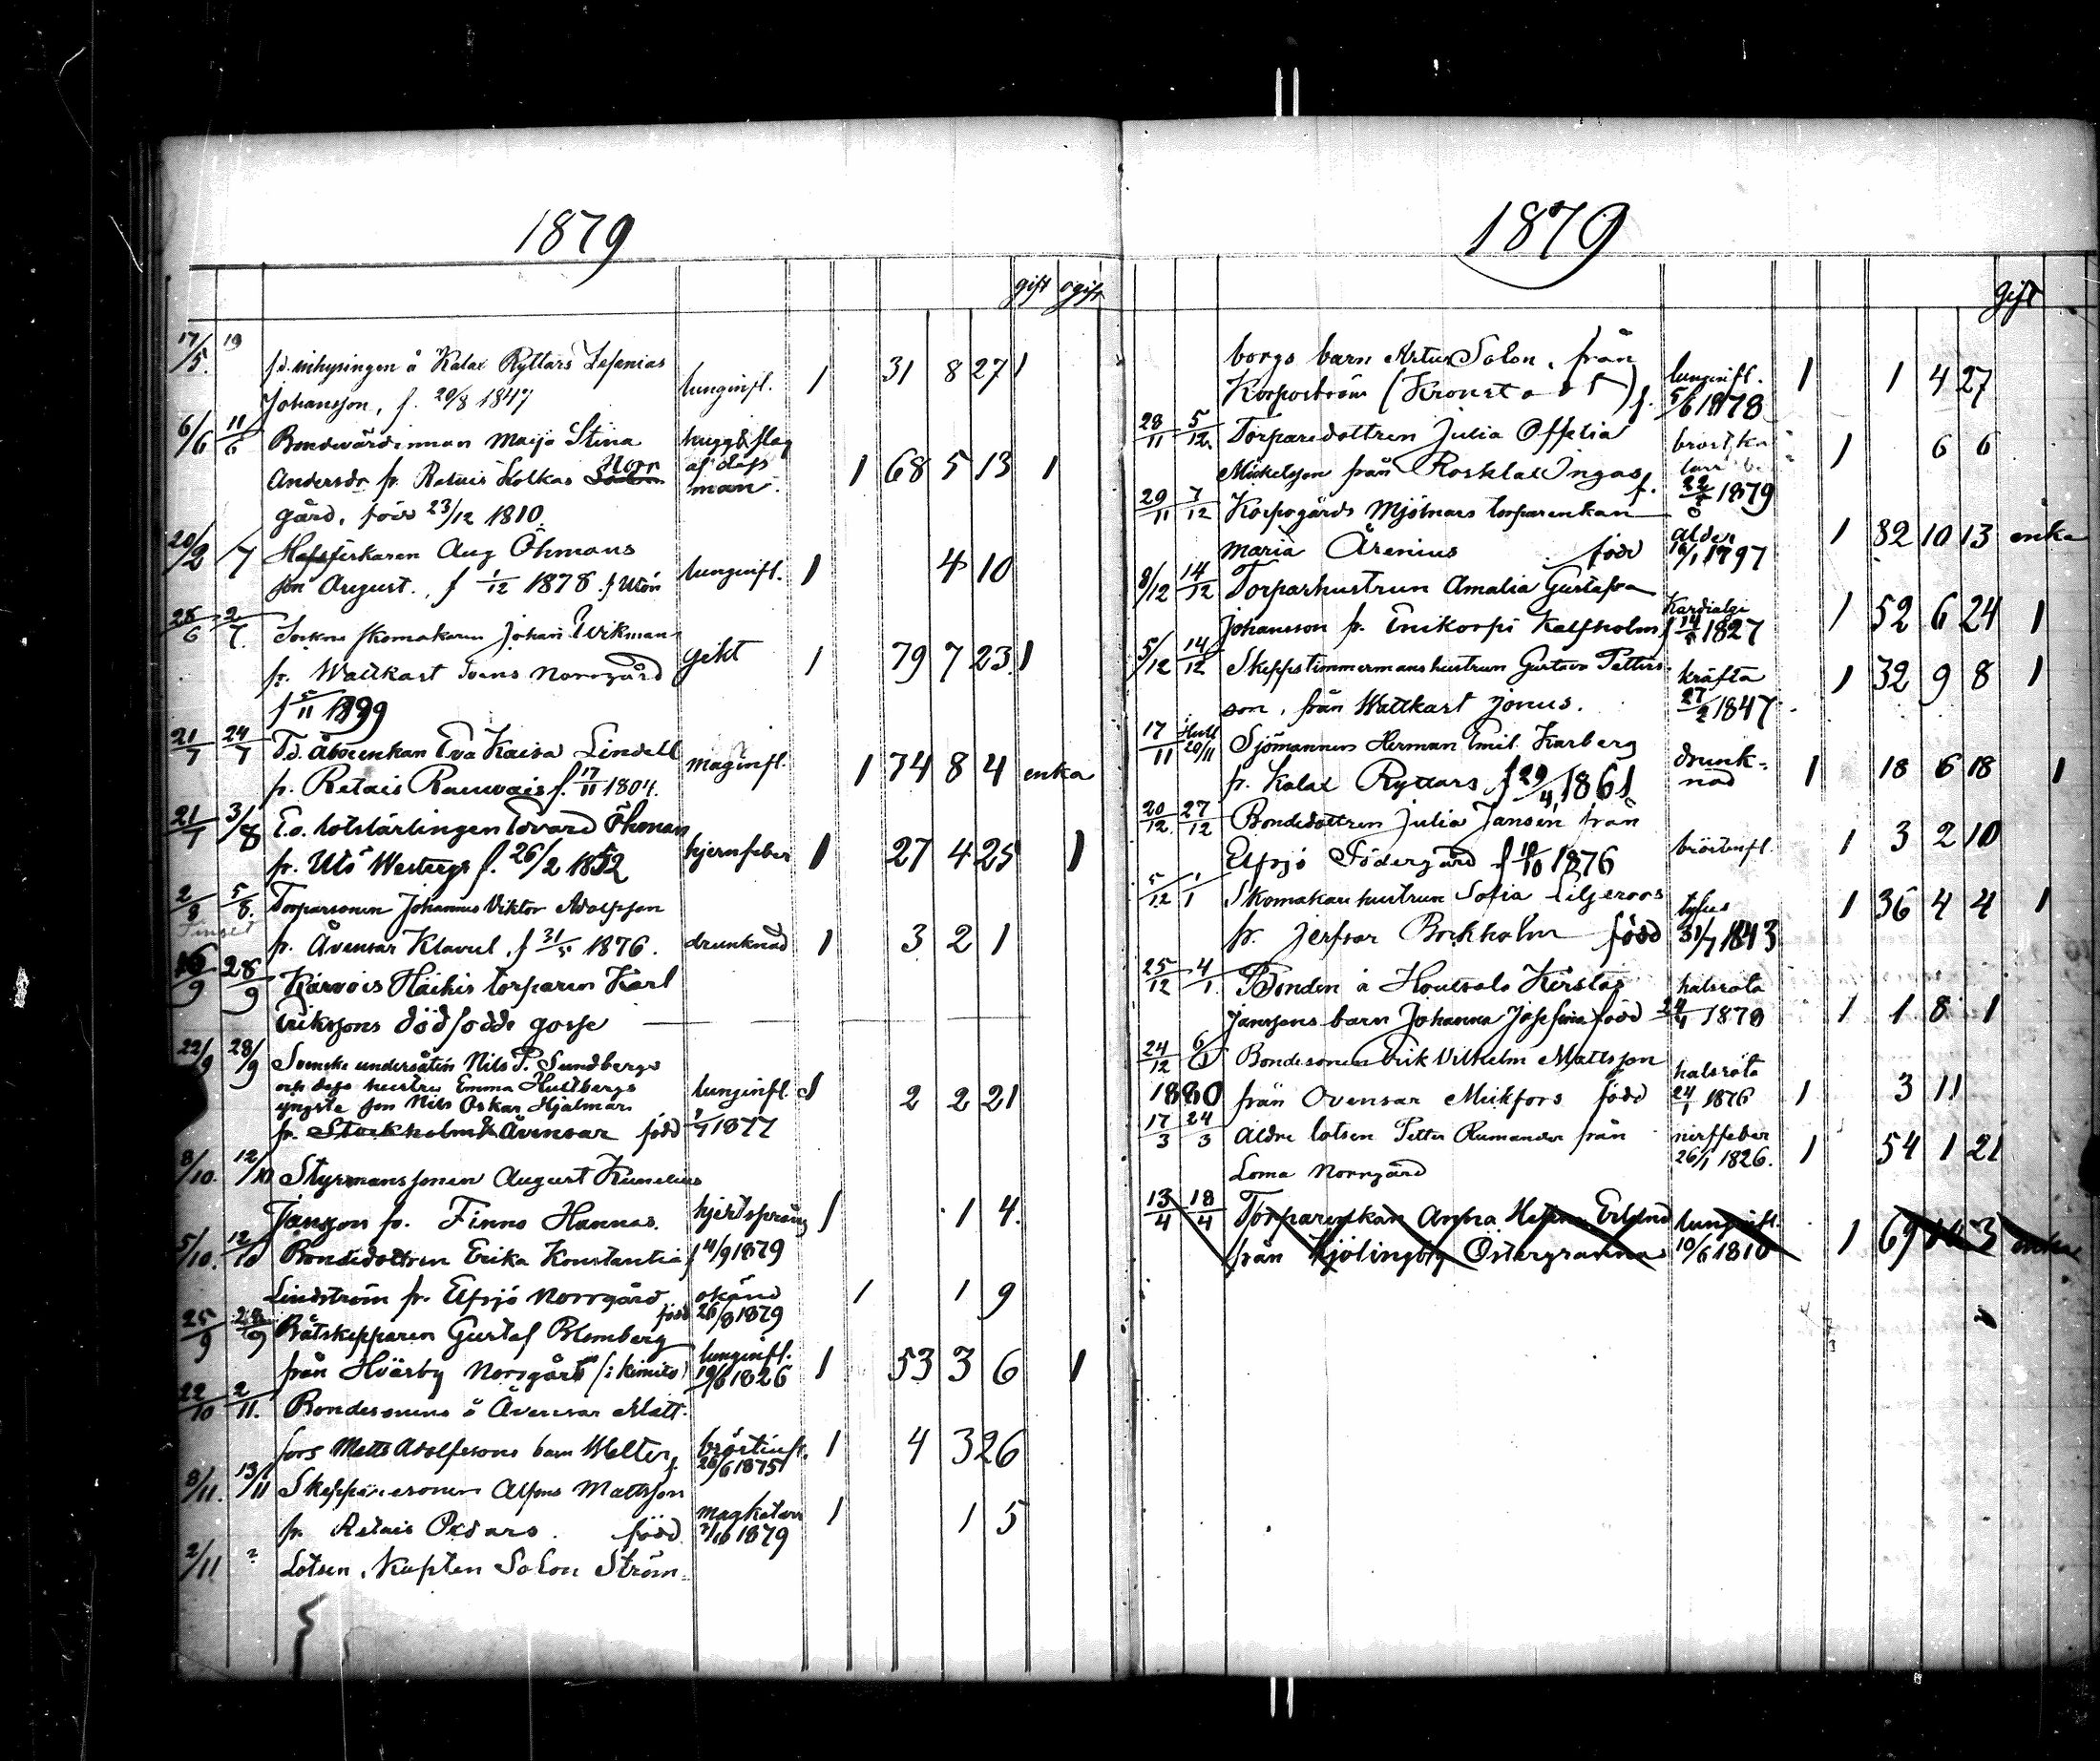 1879
gift ogift
17/5 19 f.d. inhysingen å Kalax Ryttars Zefanias
Johansson, f. 20/8 1847 lunginfl. 1 31 8 27 1
6/6 11/6 Bondevärdinnan Maja Stina hugg & slag
Andersdr fr. Retais Kolkas Södern Norr af dess man 1 68 5 13 1
gård, född 23/12 1810.
20/2 /7 Aug Öhmans
son August., f 1/12 1878. f Utön lunginfl. 1 4 10
25/6 2/7 Sockne skomakaren Johan Wikman
fr. Wattkast Söens Norrgård gikt 1 79 7 23 1
f 5/11 1899
21/7 24/7 F.d. Åboenkan Eva Kaisa Lindell
fr. Retais Rauwais f. 17/11 1804. maginfl. 1 74 8 4 enka
21/7 3/8 E.o. lotslärlingen Edvard Öhman
fr. Utö Westergs f. 26/2 1852 hjernfeber 1 27 4 25 1
2/8 5/8. Torparsonen Johannes Viktor Adolfsson
fr. Åvensar Klavul, f 31/5 1876. drunknad 1 3 2 1
16/9 28/9 Kärvois Häikis torparen Karl
Erikssons dödfödde gosse
22/9 28/9 Svenske undersåten Nils P. Sundbergs
och dess hustru Emma Hultbergs
yngste son Nils Oskar Hjalmar lunginfl. 1 2 2 21
fr. Stockholm Åvensar född /7 1877
8/10. 12/10 Styrmanssonen August Kunelius
Jansson fr. Finno Hannas. hjertsprång 1 1 4.
5/10. 12/10 Bondedottren Erika Konstantia f 4/9 1879
Lindström fr. Elfsjö Norrgård okänd 1 1 9
född 26/8 1879
25/9 28/9 Båtskepparen Gustaf Blomberg
från Hvärby Norrgård (i Kimito) lunginfl. 19/6 1826 1 53 3 6 1
22/10 2/11. Bondesonens å Åvensar Matt-
fors Matts Adolfssons barn Welter f. bröstinfl. 26/6 1875 1 4 3 26
8/11. 13/11 Skepparesonen Alfons Mattsson
fr. Retais Pedars. född magkatarr 3/10 1879 1 1 5
2/11 ? Lotsen, Kapten Solon Ström-
1879
gift
borgs barn Artur Solon, från
Korpoström (Kronst) f. lunginfl. 5/6 1878 1 1 4 27
28/11 5/12 Torparedottren Julia Offelia
Mickelsson från Rosklax Ingas f. 22/5 1879 1 6 6
29/11 7/12 Korpogårds Mjölnars torparenkan
Maria Ärenius född ålder 16/1 1797 1 82 10 13 enka
8/12 14/12 Torparhustrun Amalia Gustafva
Johansson fr. Enikorpi Kalfholm f Kardialgi 14/5 1827 1 52 6 24 1
5/12 14/12 Skeppstimmermans hustrun Gustava Petters-
son, från Wattkast Jonus. kräfta 27/2 1847. 1 32 9 8 1
17/11 Hull 20/11 Sjömannen Herman Emil Karberg
fr. Kalax Ryttars f 29/4 1861 drunk-nad 1 18 6 18 1
20/12. 27/12 Bondedottren Julia Jansén från
Elfsjö Södergård f 10/10 1876 bröstinfl. 1 3 2 10
5/12 1/1 Skomakarehustrun Sofia Liljeroos
fr. Jerfsor Borkholm född tyfus 31/7 1843 1 36 4 4 1
25/12 4/1. Bonden å Houtsala Kerstas
Janssons barn Johanna Josefina född halsröta 24/4 1878 1 1 8 1
24/12 6/1 Bondesonen Erik Vilhelm Mattsson
1880 från Ovensar Mickfors född halsröta 24/1 1876 1 3 11
17/3 24/3 Äldre lotsen Petter Rumander från nerffeber
Loma Norrgård 26/1 1826. 1 54 1 21
13/4 18/4 Torparenkan Anna Helena Erlund lunginfl.
från Kjölingby Östergranna 10/6 1810 1 69 10 3 enka